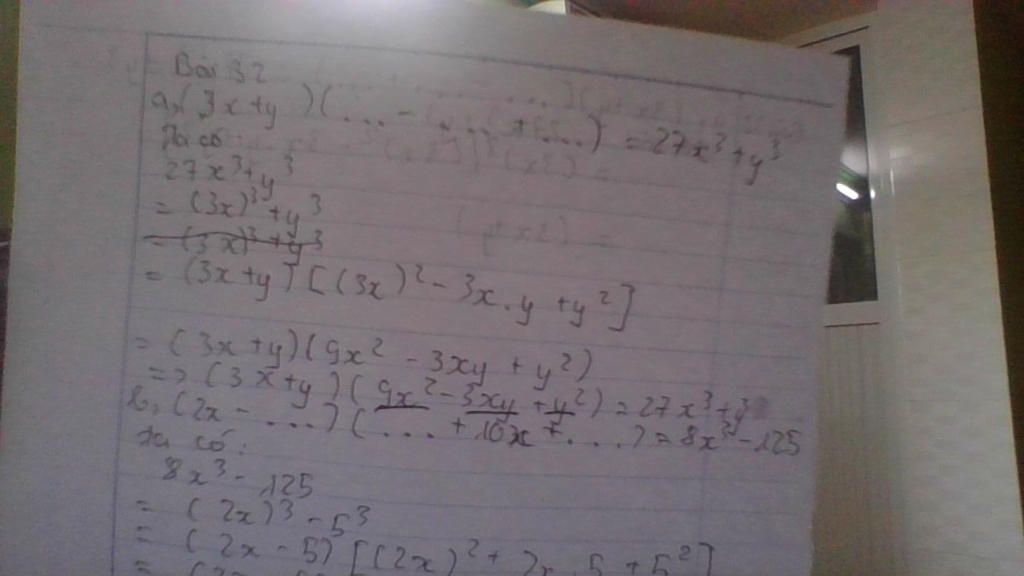 Bài 32
a, (3x+y)(... - ... + ...) = 27x³+y³
Ta có
27x³+y³
= (3x)³+y³
= (3x)³+y³
= (3x+y)[(3x)²-3x.y+y²]
= (3x+y)(9x² - 3xy + y²)
=> (3x+y)(9x²-3xy+y²) = 27x³+y³
b, (2x-...)(... + 10x + ...) = 8x³-125
ta có:
8x³-125
= (2x)³-5³
= (2x-5)[(2x)²+2x.5+5²]